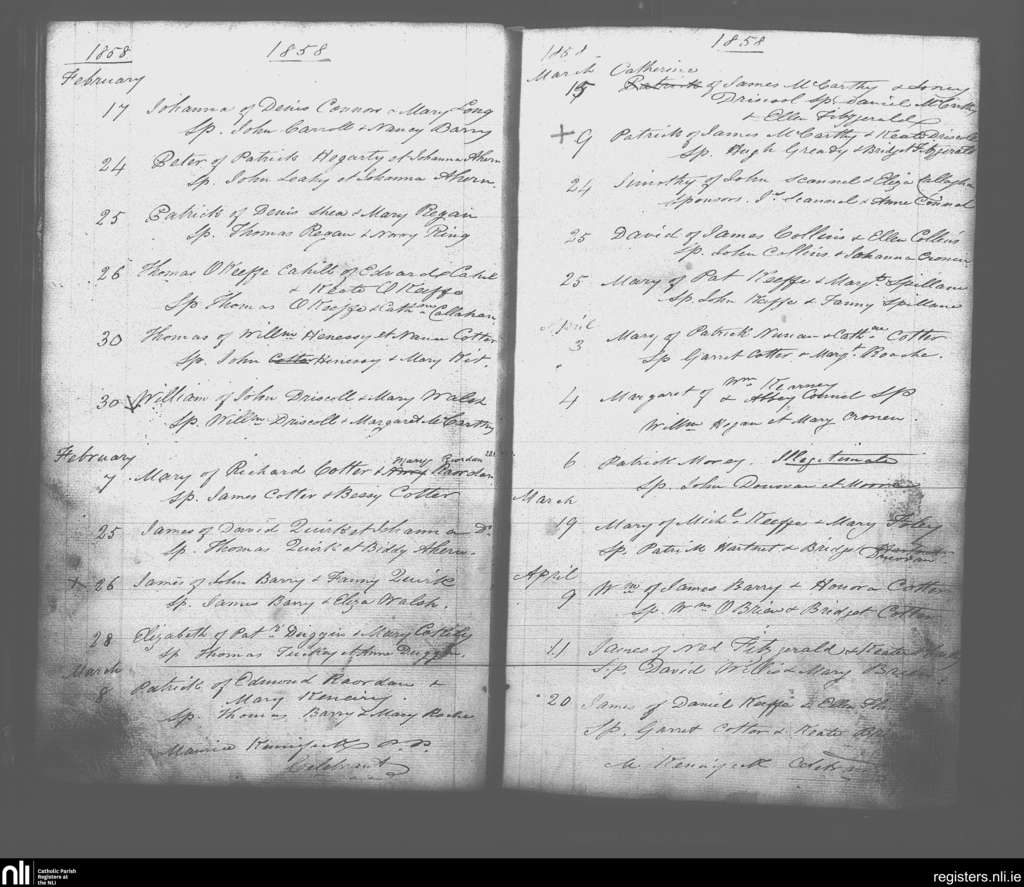 1858 1858
February
17 Johanna of Denis Connor & Mary Long
Sp. John Carroll & Nancy Barry
24 Peter of Patrick Hogarty et Johanna Ahern
Sp. John Leahy et Johanna Ahern.
25 Patrick of Denis Shea & Mary Regan
Sp. Thomas Regan & Norry Ring
26 Thomas O'Keeffe Cahill of Edward Cahill
& Keate O'Keeffe
Sp Thomas O'Keeffe & Cathne Callahan
30 Thomas of Willm Henessy et Nance Cotter
Sp. John Cotter Henessy & Mary
30 William of John Driscoll & Mary Walsh
Sp. Willm Driscoll & Margaret McCarthy
February
Mary Riordan
7 Mary of Richard Cotter & Norry Raordan
Sp. James Cotter & Bessy Cotter
25 James of David Quirk et Johanna Do
Sp. Thomas Quirk et Biddy Ahern.
+ 26 James of John Barry & Fanny Quirk
Sp. James Barry & Eliza Walsh.
28 Elizabeth of Patk Duggin & Mary
Sp Thomas et Ann Duggin.
March
8 Patrick of Edmond Raordan &
Mary
Sp. Thomas Barry & Mary Roche
Maurice Kenifeck P.P.
Celebrant
1858 1858
March Catherine
15 Patrick of James McCarthy &
Driscol Sp. Daniel McCarthy
& Ellen Fitzgerald
+ 9 Patrick of James McCarthy & Keate Driscoll
Sp. Hugh Gready & Bridget Fitzgerald
24 Timothy of John Scannel & Eliza Callaghan
Sponsors. Js Scannel & Anne Connel
25 David of James Collins & Ellen Collins
Sp. John Collins & Johanna Cronen
25 Mary of Pat Keeffe & Margt Spillane
Sp. John Keffe & Fanny Spillane
April
3 Mary of Patrick Nunan & Cathne Cotter
Sp Garret Cotter & Margt Roache.
4 Margaret of Wm Kearney
& Abbey Connel Sp
Willm Hogan et Mary Cronen
6 Patrick Morey. Illegitimate
Sp. John Donovan et
March
19 Mary of Michl Keeffe & Mary Foley
Sp. Patrick Hartnet & Bridget
Donovan
April
9 Wm of James Barry & Honora Cotter
Sp. Wm O'Brien & Bridget Cotter
11 James of Ned Fitzgerald & Keate
Sp. David Willis & Mary
20 James of Daniel Keeffe & Ellen
Sp. Garret Cotter & Keate
M. Kenifeck
nli Catholic Parish
Registers at
the NLI
registers.nli.ie